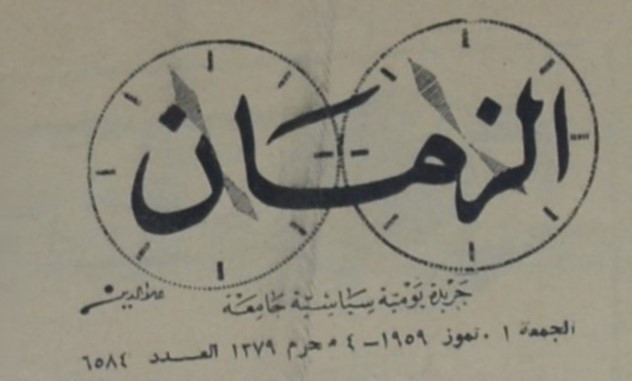 الزمان
جريدة يومية سياسية جامعة
علاء الدين
الجمعة ١٠ تموز ١٩٥٩ – ٤ محرم ١٣٧٩ العدد ٦٥٨٤